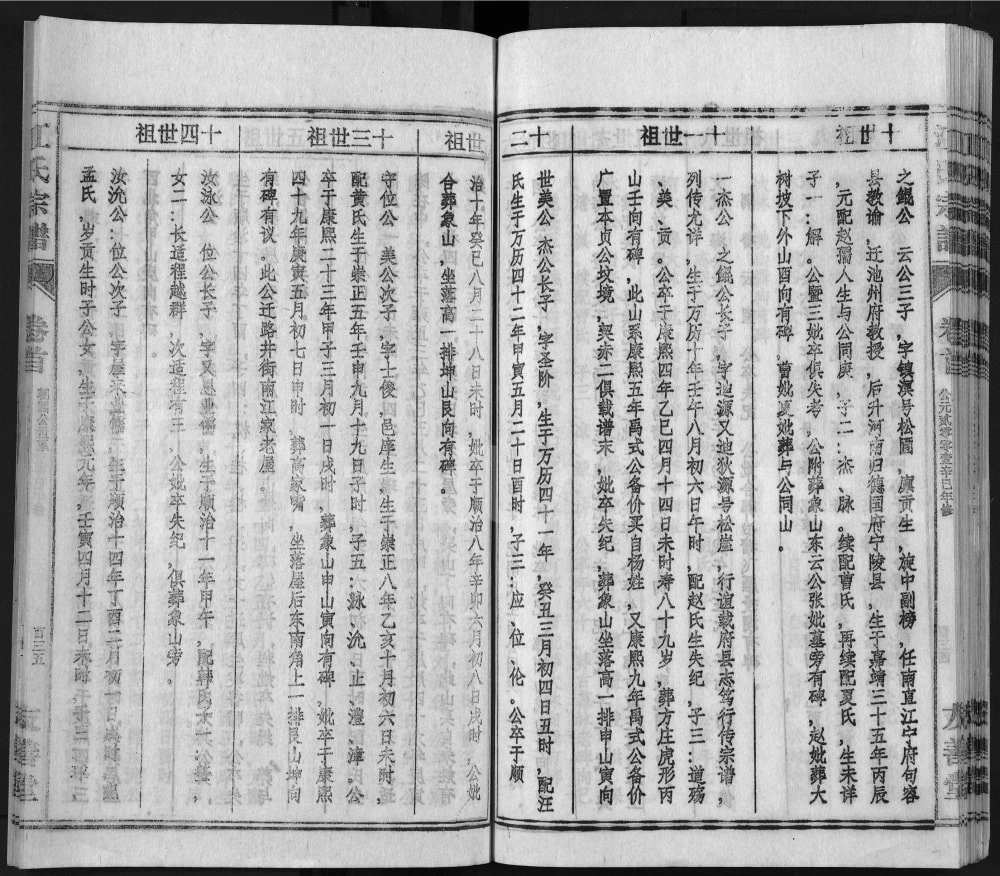 十世祖
之鲲公 云公三子,字镇溟号松圆,廪贡生,旋中副榜,任南直江宁府句容
县教谕,迁池州府教授,后升河南归德国府宁陵县,生于嘉靖三十五年丙辰
,元配赵孺人生与公同庚,子二:杰、脉。续配曹氏,再续配夏氏,生未详
子一:解。公暨三妣卒俱失考,公附葬象山东云公张妣墓旁有碑,赵妣葬大
树坡下外山酉向有碑,曹妣夏妣葬与公同山。
十一世祖
一杰公 之鲲公长子,字迪源又迪狄源号松崖,行谊载府县志笃行传宗谱,
列传尤详,生于万历十年壬午八月初六日午时,配赵氏生失纪,子三:道殇
、美、贡。公卒于康熙四年乙巳四月十四日未时寿八十九岁,葬方庄虎形丙
山壬向有碑,此山系康熙五年禹式公备价买自杨姓,又康熙九年禹式公备价
广置本贞公坟境,契赤二俱载谱末,妣卒失纪,葬象山坐落高一排申山寅向
十二世祖
世美公 杰公长子,字圣阶,生于万历四十一年,癸丑三月初四日丑时,配汪
氏生于万历四十二年甲寅五月二十日酉时,子三:应、位、伦。公卒于顺
治十年癸巳八月二十八日未时,妣卒于顺治八年辛卯六月初八日戌时,公妣
合葬象山,坐落高一排坤山艮向有碑。
十三世祖
守位公 美公次子,字上俊,邑庠生,生于崇正八年乙亥十月初六日未时
配黄氏生于崇正五年壬申九月十九日子时,子五:泳、沇、止、澧、漳。公
卒于康熙二十三年甲子三月初一日戌时,葬象山申山寅向有碑,妣卒于康熙
四十九年庚寅五月初七日申时,葬高家嘴,坐落屋后东南角上一排艮山坤向
有碑有议。此公迁路井街南江家老屋。
十四世祖
汝泳公 位公长子,字又恳业儒,生于顺治十一年甲午,配韩氏
女二:长适程越群,次适程有三,公妣卒失纪,俱葬象山旁。
汝沇公:位公次子,字屋来业儒,生于顺治十四年丁酉二月初一日
孟氏,岁贡生时子公女,生于康熙元年,壬寅四月十二日未时,子三
江氏宗谱
卷首
百三五
友善堂
卷首
公元贰零零壹辛巳年修
友善堂